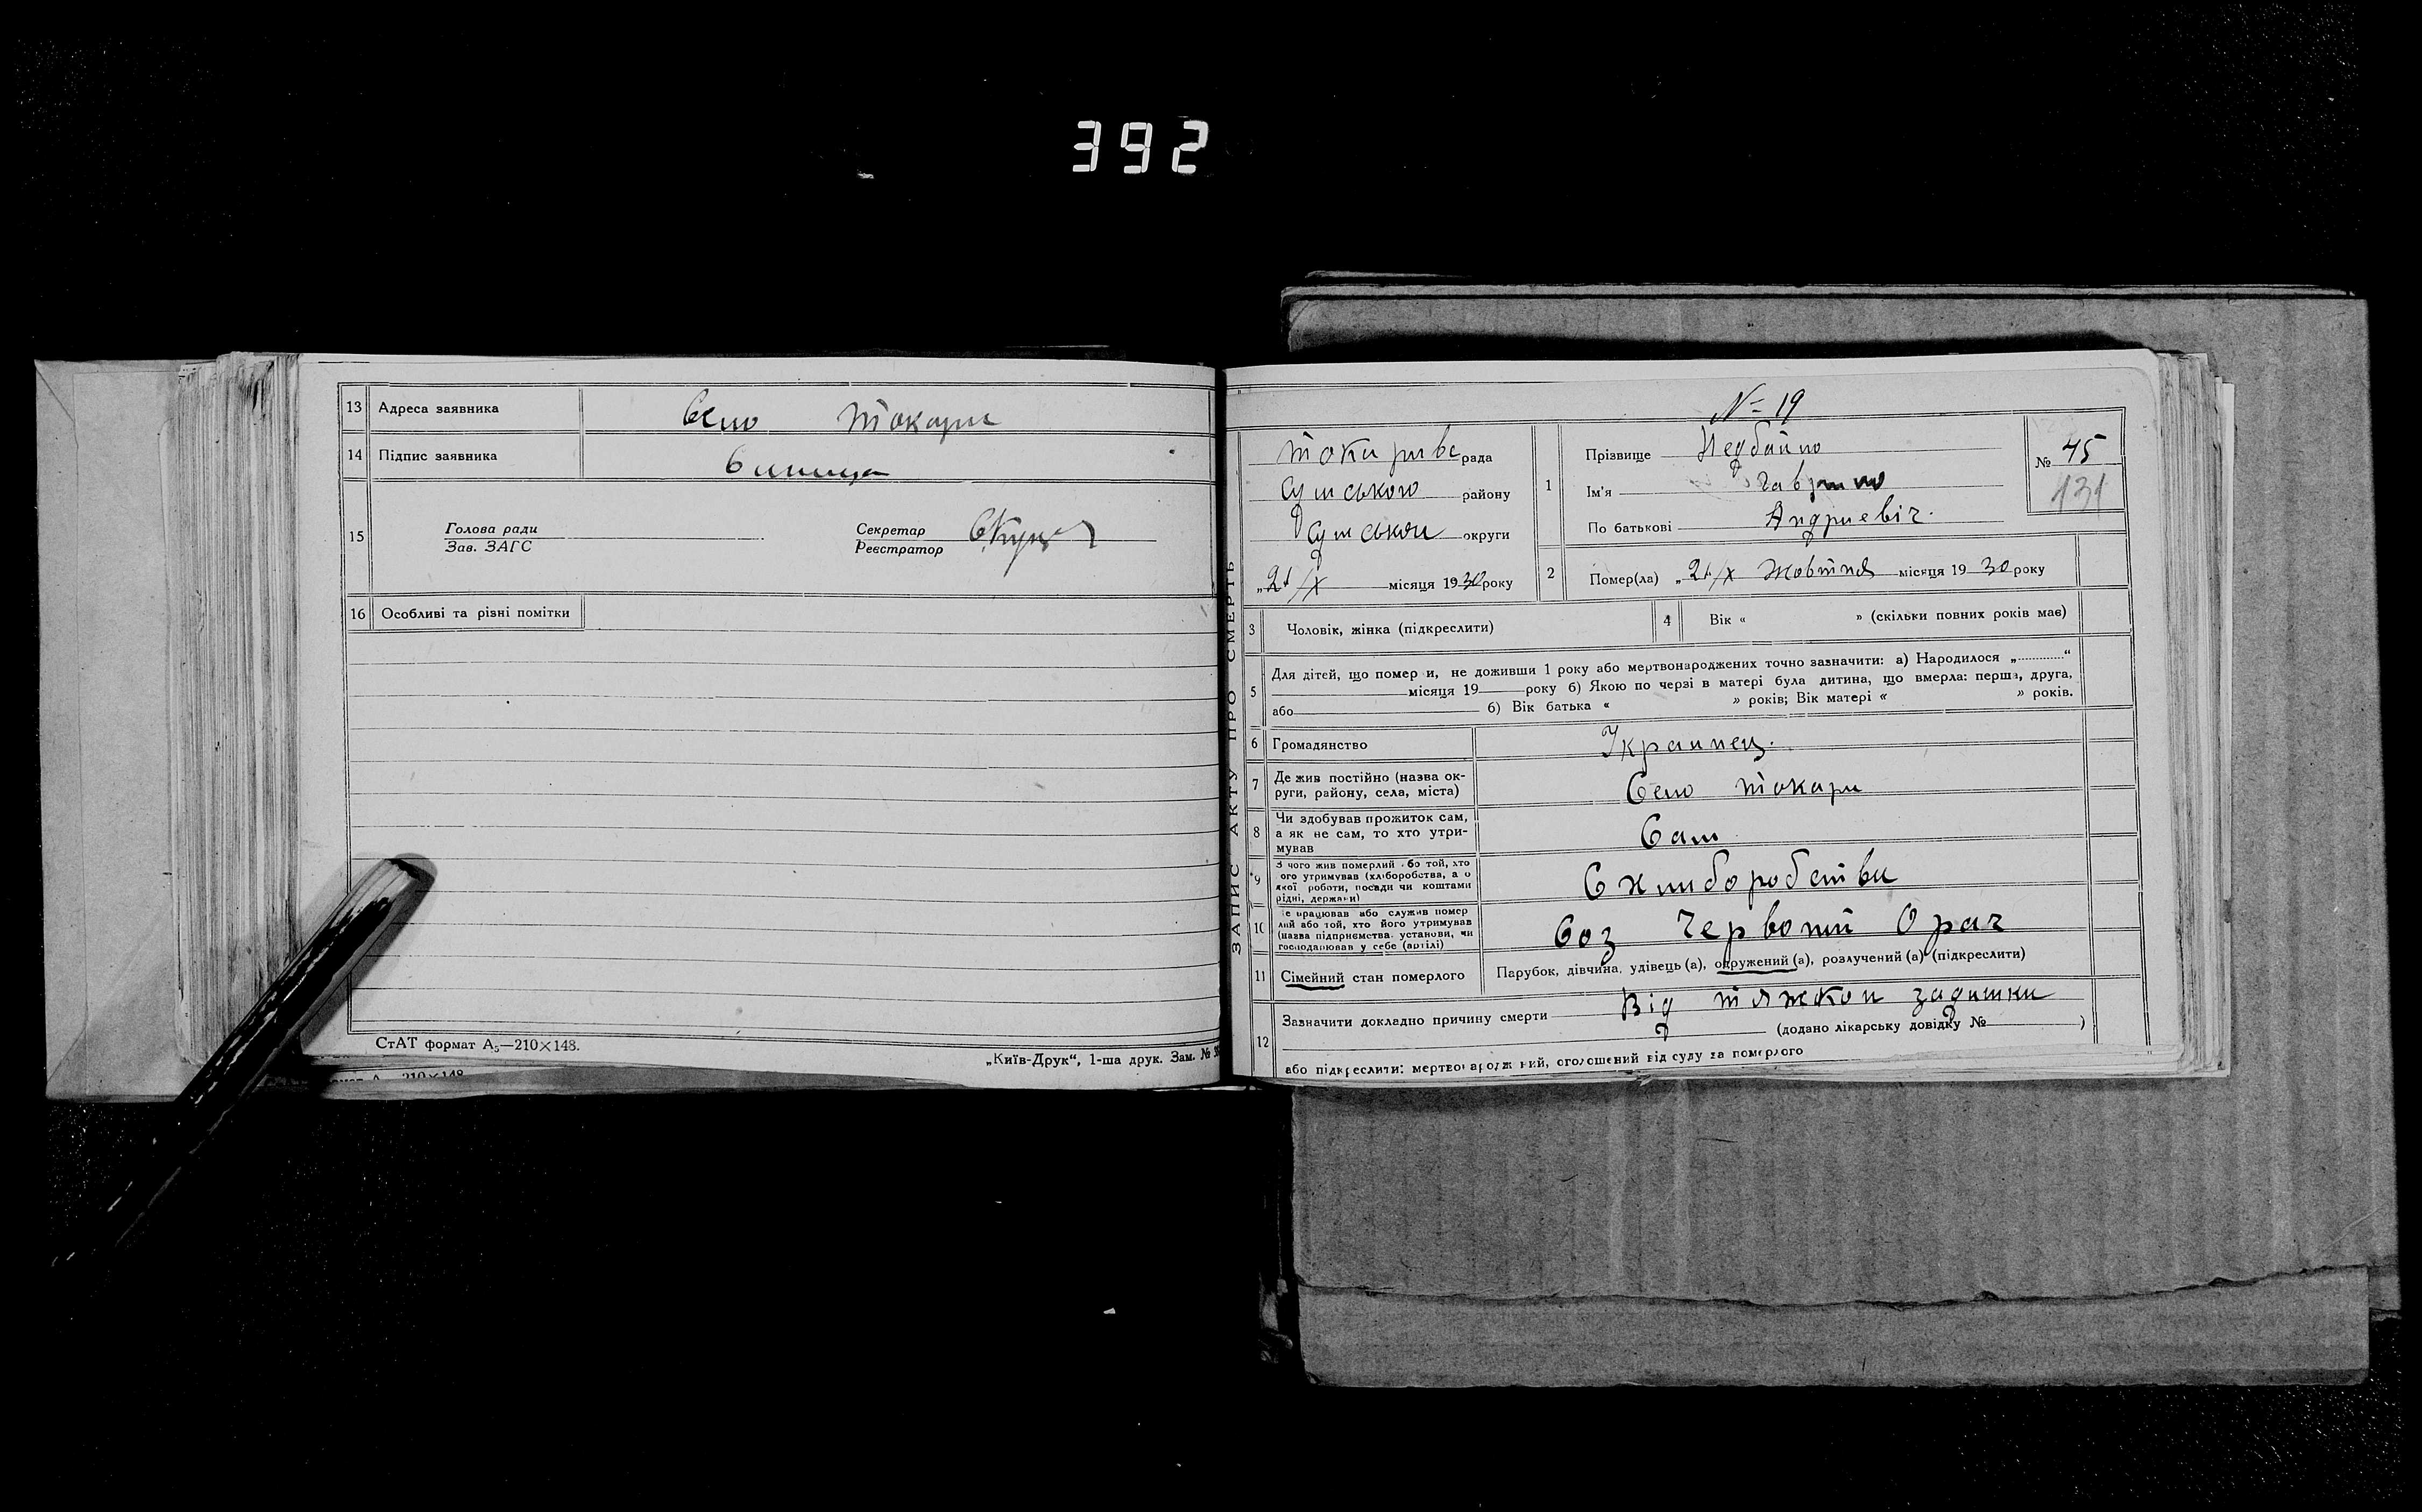 392
13 Адреса заявника Село Токари
14 Підпис заявника
15 Голова ради
Зав. ЗАГС
Секретар
Реєстратор
16 Особливі та різні помітки
СтАТ формат А₅—210×148.
„Київ-Друк“, 1-ша друк. Зам. №
210×148
ЗАПИС АКТУ ПРО СМЕРТЬ
№ 19
рада
Сумського району
Сумськои округи
„21/X місяця 1930 року
1 Прізвище Недбайло
Ім'я Гаврило
По батькові Андриевіч.
№ 45
131
2 Помер(ла) „21/X Жовтня місяця 1930 року
3 Чоловік, жінка (підкреслити)
4 Вік « » (скільки повних років має)
5 Для дітей, що помер и, не доживши 1 року або мертвонароджених точно зазначити: а) Народилося „............“
місяця 19 року б) Якою по черзі в матері була дитина, що вмерла: перша, друга,
або б) Вік батька « » років; Вік матері « » років.
6 Громадянство Украинец.
7 Де жив постійно (назва ок-
руги, району, села, міста) Село Токари
8 Чи здобував прожиток сам,
а як не сам, то хто утри-
мував Сам
9 З чого жив померлий або той, хто
ого утримував (хліборобства, а о
якої роботи, посади чи коштами
рідні, держави) С хлиборобства
10 е працював або служив помер
лий або той, хто його утримував
(назва підприємства, установи, чи
господарював у себе (артілі) Соз Червоний Орач
11 Сімейний стан померлого Парубок, дівчина, удівець (а), одружений (а), розлучений (а) (підкреслити)
12 Зазначити докладно причину смерти Від тяжкои задишки
(додано лікарську довідку № )
або підкреслити: мертвонароджений, оголошений від суду за померлого